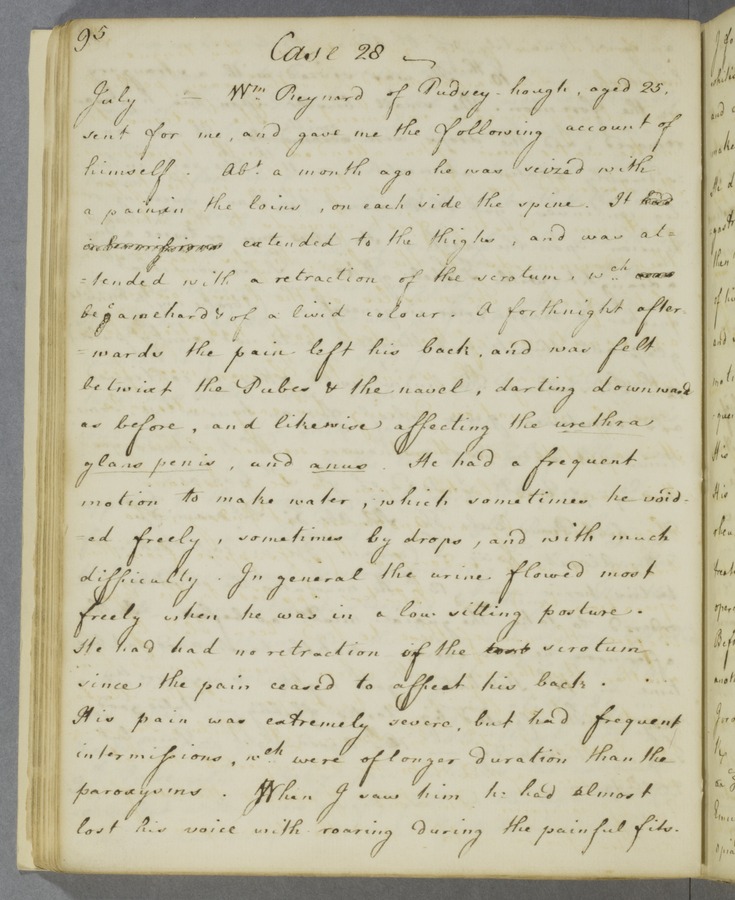 95
Case 28
July — Wm Reynard of Pudsey-hough, aged 25,
sent for me, and gave me the following account of
himself. Abt a month ago he was seized with
a pain in the loins, on each side the spine. It had
intermissions extended to the thighs, and was at=
=tended with a retraction of the scrotum, wch was
became hard & of a livid colour. A forthnight after
=wards the pain left his back, and was felt
betwixt the Pubes & the navel, darting downward
as before, and likewise affecting the urethra
glans penis, and anus. He had a frequent
motion to make water, which sometimes he void=
=ed freely, sometimes by drops, and with much
difficulty. In general the urine flowed most
freely when he was in a low sitting posture.
He had had no retraction of the scrotum
since the pain ceased to affect his back.
His pain was extremely severe, but had frequent
intermissions, wch were of longer duration than the
paroxysms. When I saw him he had almost
lost his voice with roaring during the painful fits.